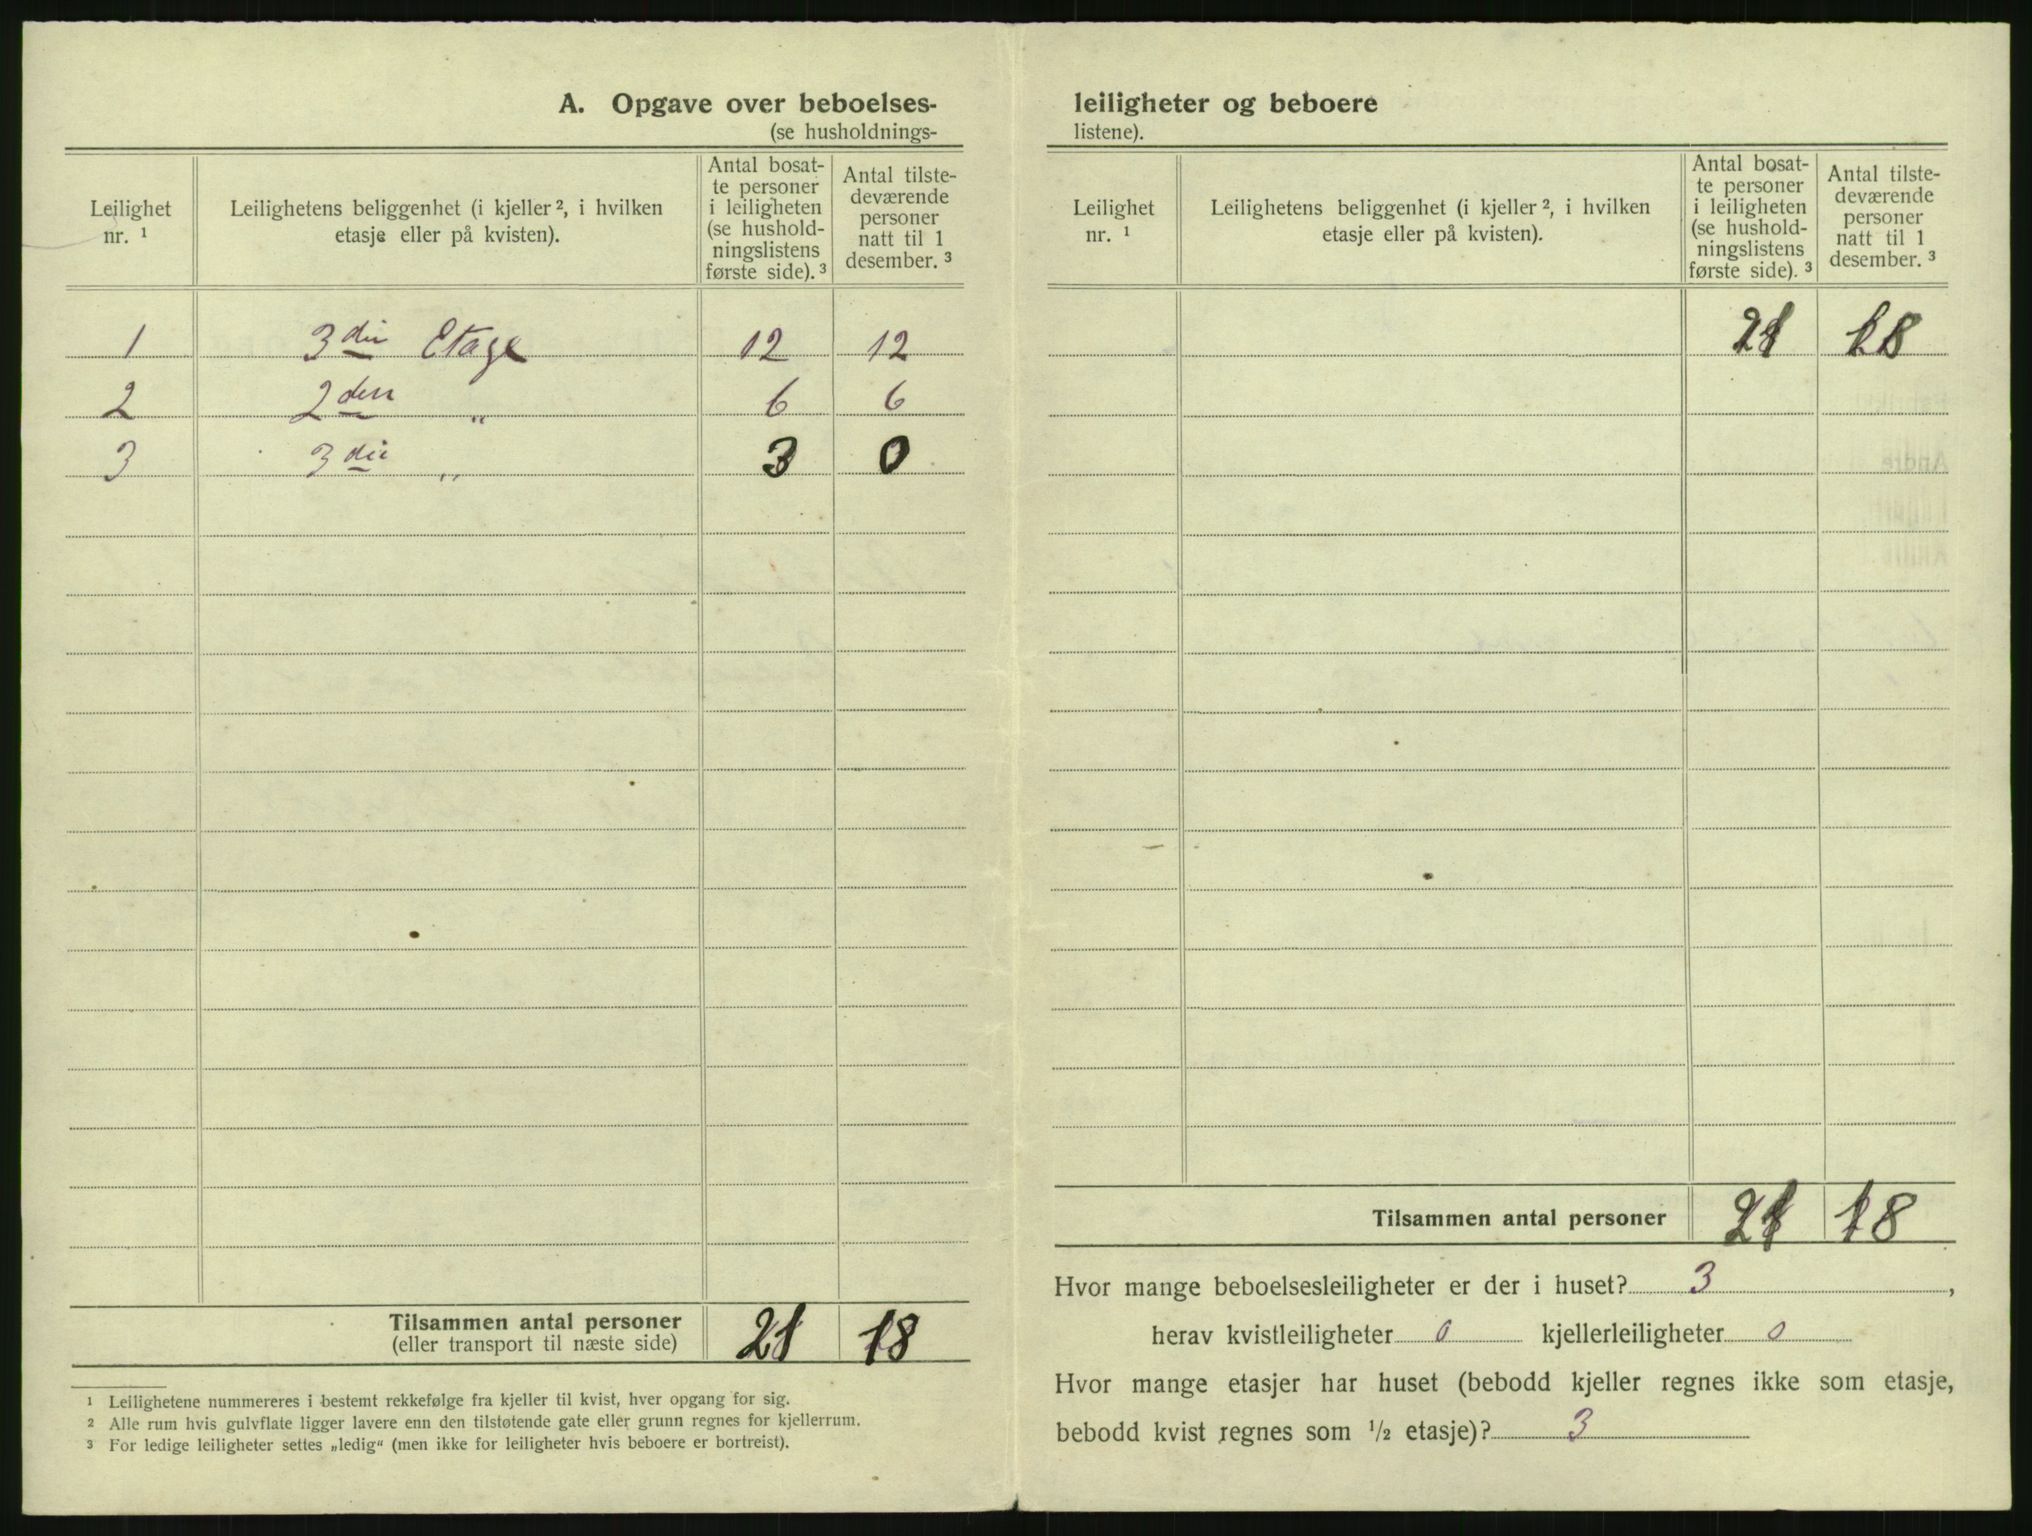 A. Opgave over beboelses-
(se husholdnings-
Leilighet nr. ¹
Leilighetens beliggenhet (i kjeller ², i hvilken etasje eller på kvisten).
Antal bosat-te personer i leiligheten (se hushold-ningslistens første side). ³
Antal tilste-deværende personer natt til 1 desember. ³
1 3die Etage 12 12
2 2den " 6 6
3 3die " 3 0
Tilsammen antal personer 21 18
(eller transport til næste side)
¹ Leilighetene nummereres i bestemt rekkefølge fra kjeller til kvist, hver opgang for sig.
² Alle rum hvis gulvflate ligger lavere enn den tilstøtende gate eller grunn regnes for kjellerrum.
³ For ledige leiligheter settes „ledig“ (men ikke for leiligheter hvis beboere er bortreist).
leiligheter og beboere
listene).
Leilighet nr. ¹
Leilighetens beliggenhet (i kjeller ², i hvilken etasje eller på kvisten).
Antal bosat-te personer i leiligheten (se hushold-ningslistens første side). ³
Antal tilste-deværende personer natt til 1 desember. ³
21 18
Tilsammen antal personer 21 18
Hvor mange beboelsesleiligheter er der i huset? 3 ,
herav kvistleiligheter 0 kjellerleiligheter 0
Hvor mange etasjer har huset (bebodd kjeller regnes ikke som etasje,
bebodd kvist regnes som ½ etasje)? 3